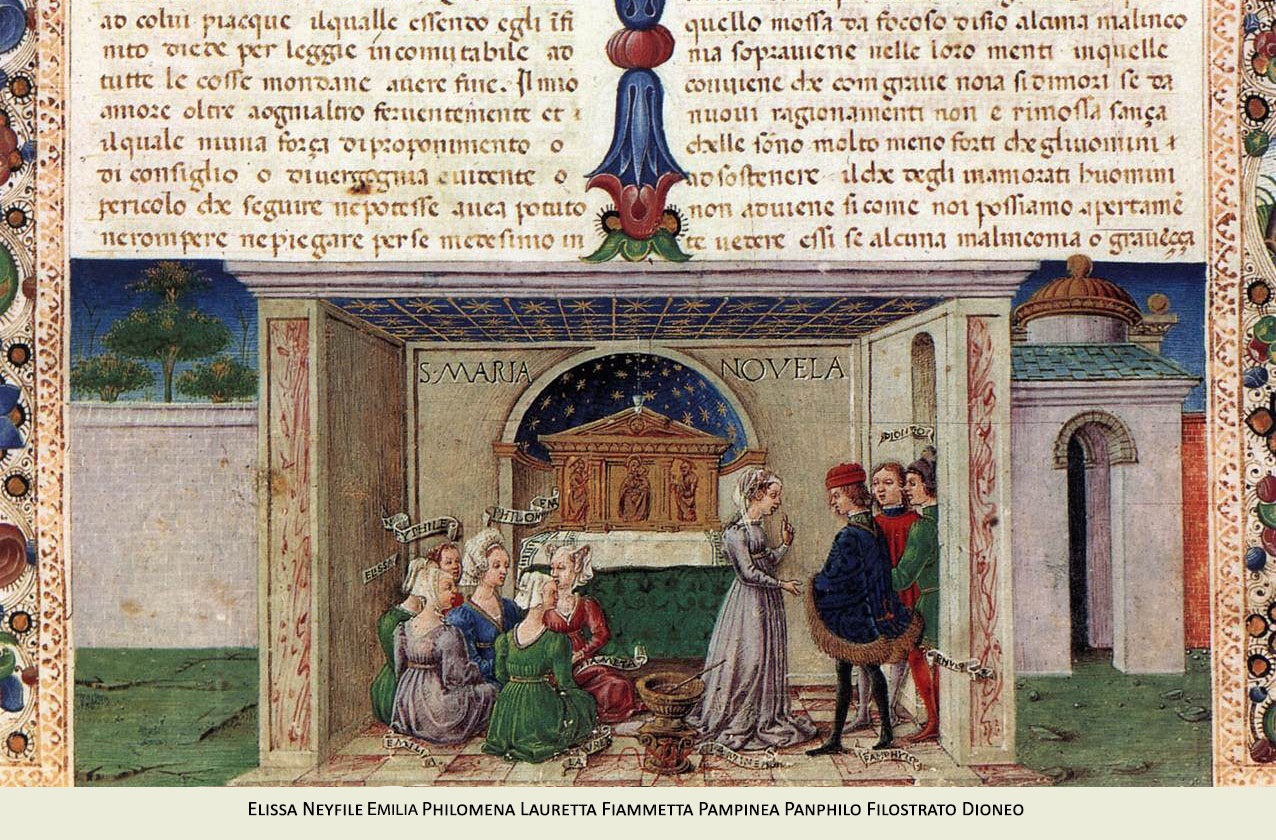 ad colui piacque ilqualle essendo egli īfi
nito diede per leggie incomutabile ad
tutte le cosse mondane auere fine. Il mio
amore oltre aogniualtro feruentemente et
ilquale niuna força di proponimento o
di consiglio o di uergogna euidente o
pericolo che seguire ne potesse auea potuto
ne rompere ne piegare per se medesimo in
quello mossa da focoso disio alcuna malinco
nia soprauiene nelle loro menti inquelle
conuiene che com graue noia si dimori se da
nuoui ragionamenti non e rimossa sança
chelle sono molto meno forti che gliuomini
ad sostenere ilche degli inamorati huomini
non aduiene si come noi possiamo apertamē
te uedere essi se alcuna malinconia o graueçça
S·MARIA NOVELA
PHILOMENA
ELISSA
EMILIA
ELISSA NEYFILE EMILIA PHILOMENA LAURETTA FIAMMETTA PAMPINEA PANPHILO FILOSTRATO DIONEO